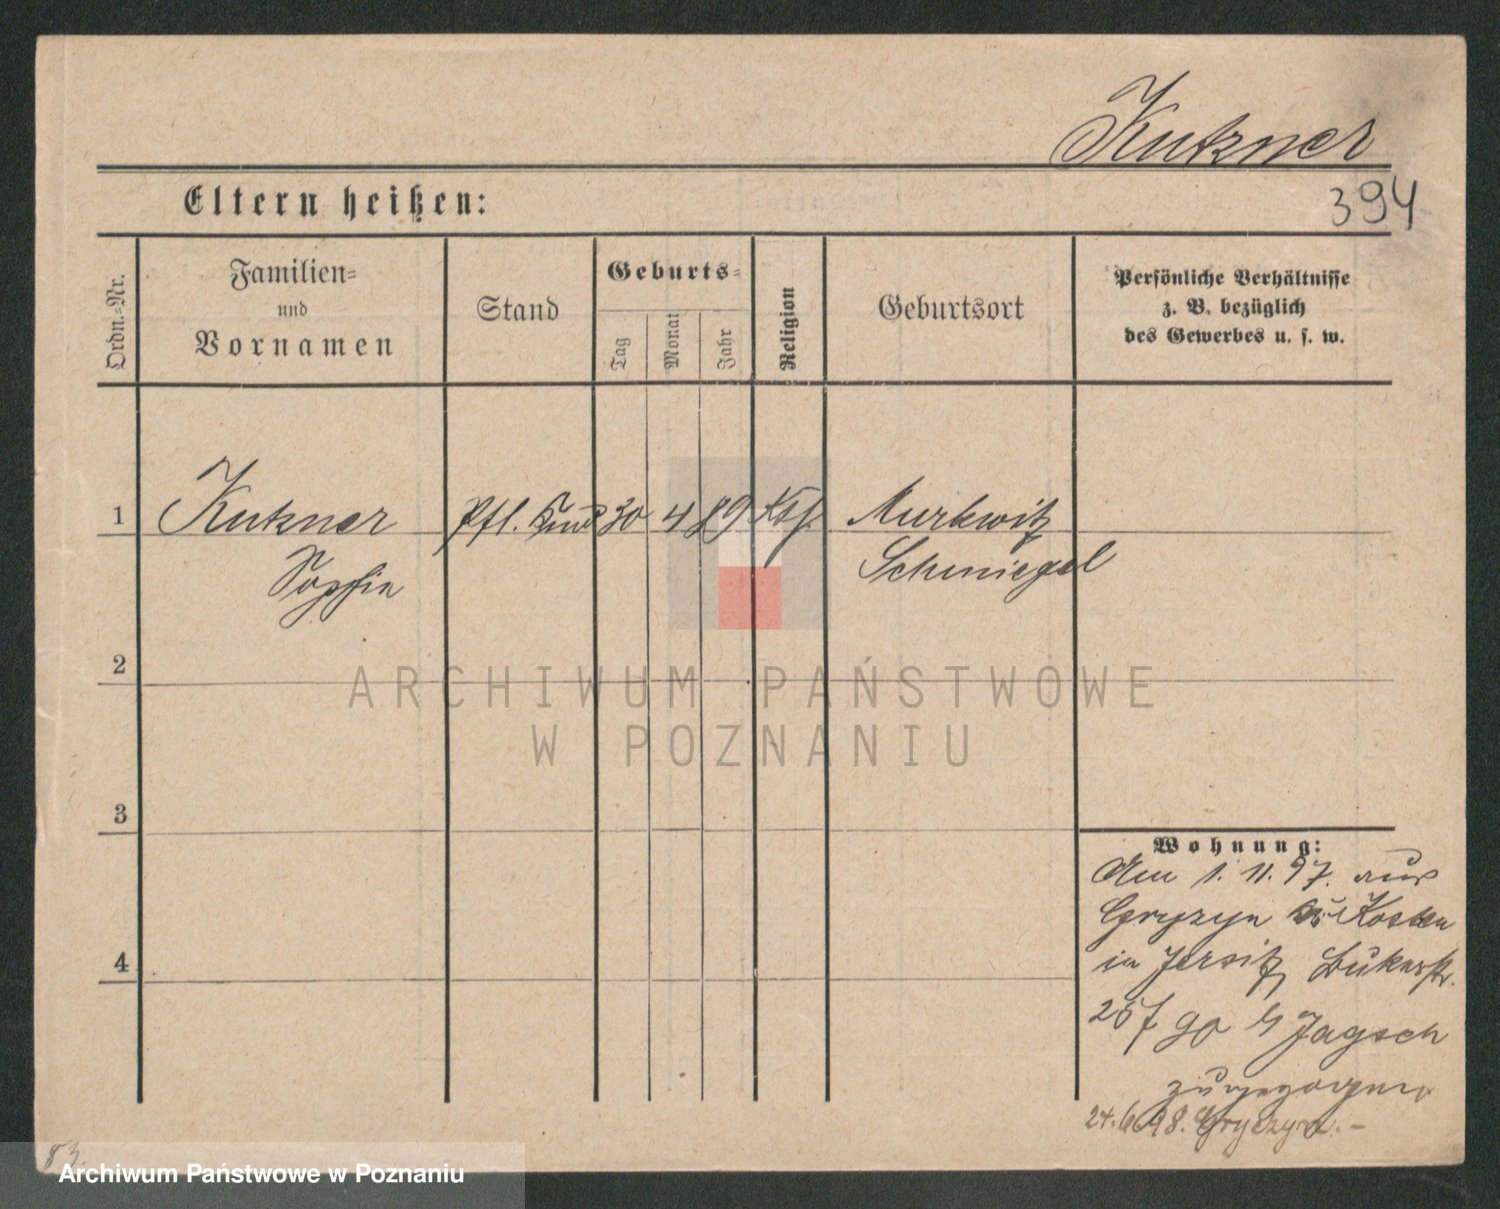 Kutzner
394
Eltern heißen:
Ordn.-Nr.
Familien-
und
Vornamen
Stand
Geburts-
Tag
Monat
Jahr
Religion
Geburtsort
Persönliche Verhältnisse
z. B. bezüglich
des Gewerbes u. s. w.
1 Kutzner Pfl. Kind 30 4 89 Kth. Murkwitz
Sophie Schmiegel
2
ARCHIWUM PAŃSTWOWE
W POZNANIU
3
Wohnung:
Am 1. 11. 97. aus
Gryzyn Kr. Kosten
in Jersitz, Bukerstr.
25 f b/ Jagsch
zugezogen
24.6.98. Gryzyn.-
4
83.
Archiwum Państwowe w Poznaniu